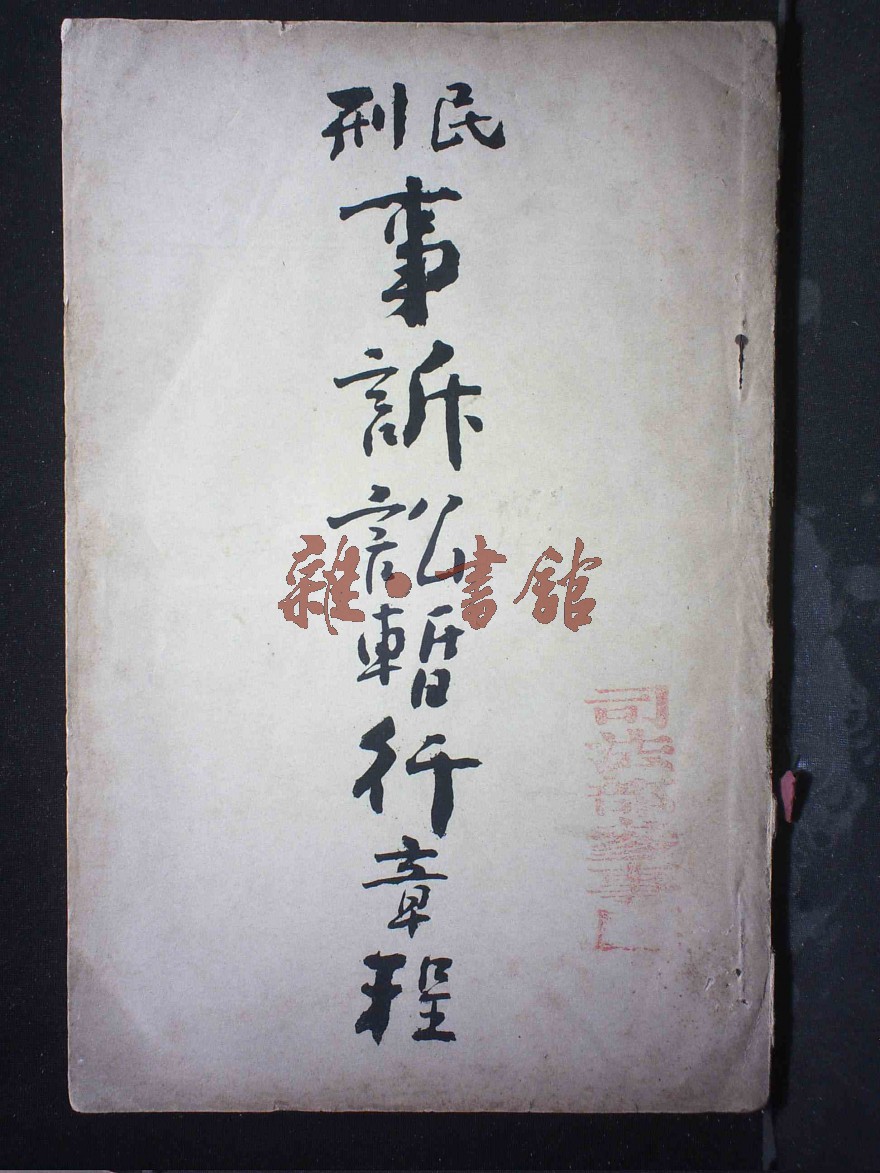 民刑
事訴訟暫行章程
雜·書館
司法部參事